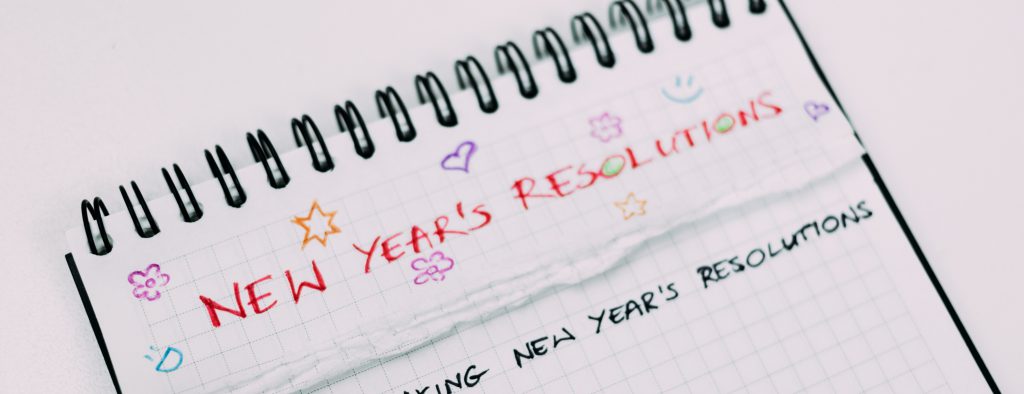 NEW YEAR'S RESOLUTIONS
NEW YEAR'S RESOLUTIONS